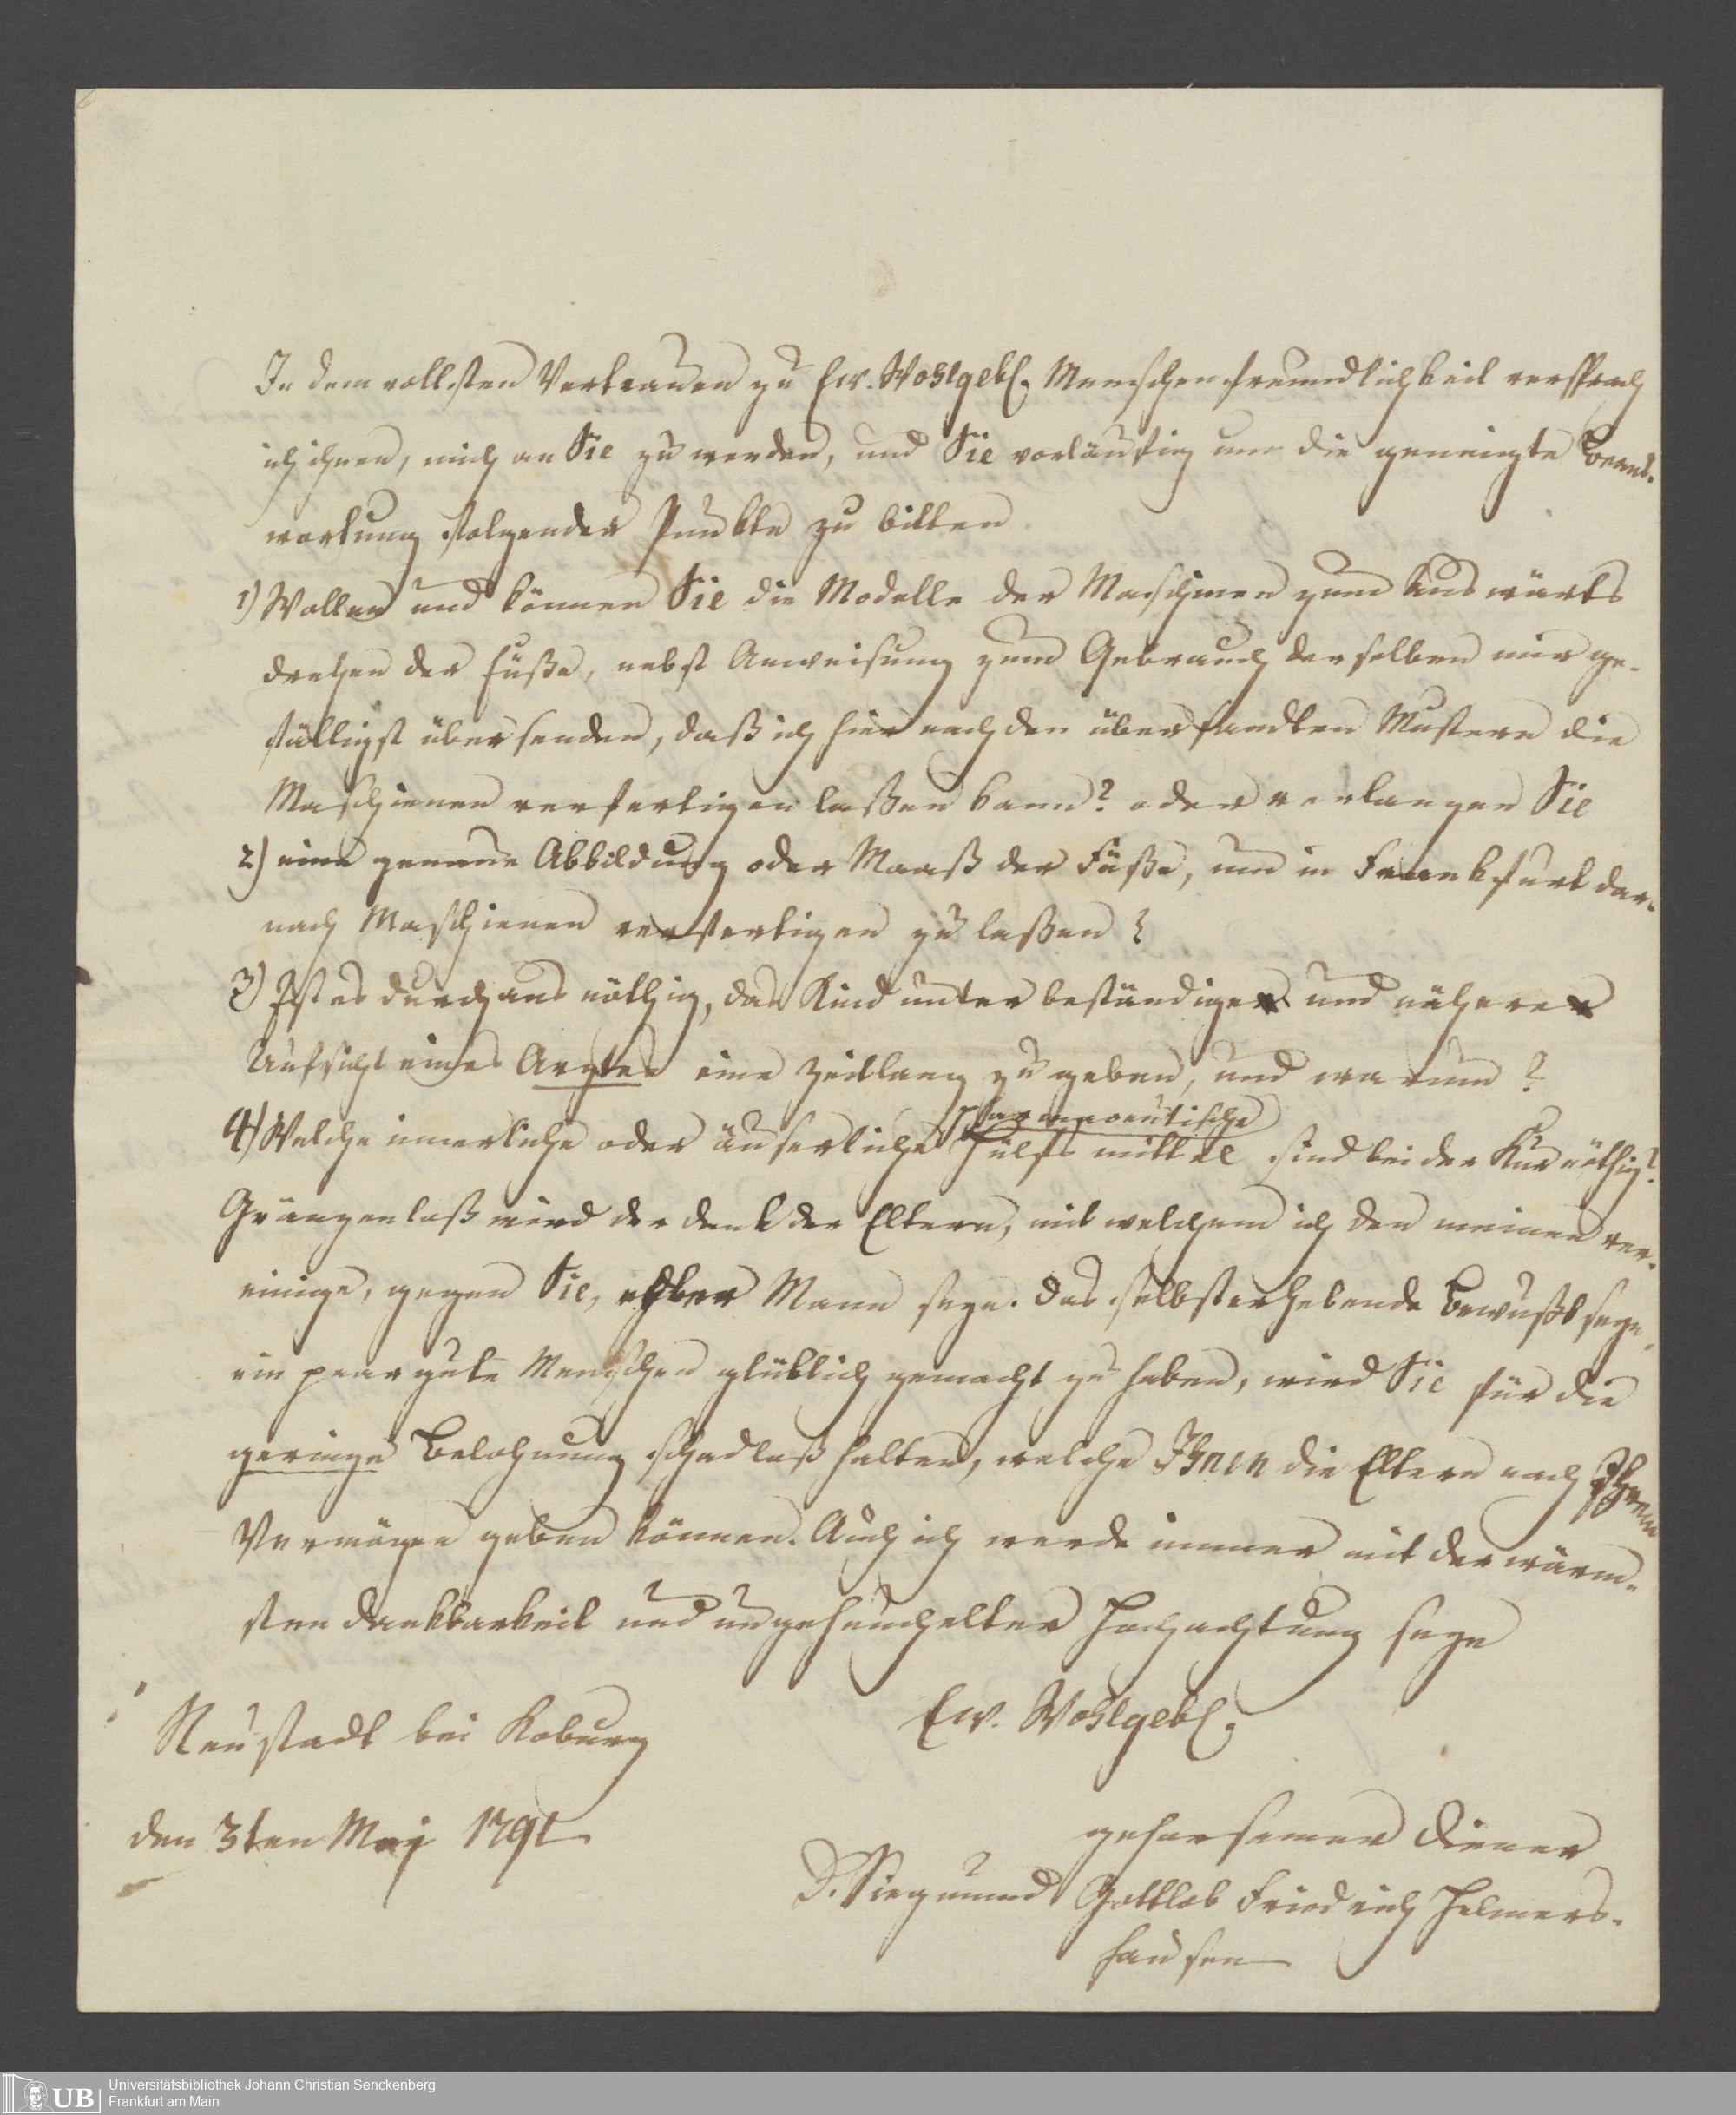 In dem vollsten Vertrauen zu Ew. Wohlgeb. Menschenfreundlichkeit versprach
ich ihnen, mich an Sie zu wenden, und Sie vorläufig um die geneigte Beant-
wortung folgender Punkte zu bitten
1) Wollen und können Sie die Modelle der Maschinen zum Auswärts
drehen der Füße, nebst Anweisung zum Gebrauch derselben mir ge-
fälligst übersenden, daß ich hier nach den übersandten Mustern die
Maschienen verfertigen laßen kann? oder verlangen Sie
2) eine genaue Abbildung oder Maaß der Füße, um in Frankfurt dar-
nach Maschienen verfertigen zu laßen?
3) Ist es durchaus nöthig, das Kind unter beständiger und näherer
Aufsicht eines Arztes eine Zeitlang zu geben, und warum?
pharmaceutische
4) Welche innerliche oder äuserliche Hülfsmittel sind bei der Kur nöthig?
Gränzenloß wird der Dank der Eltern, mit welchem ich den meinen ver-
einige, gegen Sie, edler Mann seyn. Das selbsterhebende Bewußtseyn,
ein paar gute Menschen glüklich gemacht zu haben, wird Sie für die
geringe Belohnung schadloß halten, welche Ihnen die Eltern nach Ihrem
Vermögen geben können. Auch ich werde immer mit der wärm-
sten Dankbarkeit und ungeheuchelter Hochachtung seyn
Ew. Wohlgeb.
Neustadt bei Koburg
den 3ten Maj 1791
gehorsamer Diener
D. Siegmund Gottlob Friedrich Helmers-
hausen
UB
Universitätsbibliothek Johann Christian Senckenberg
Frankfurt am Main